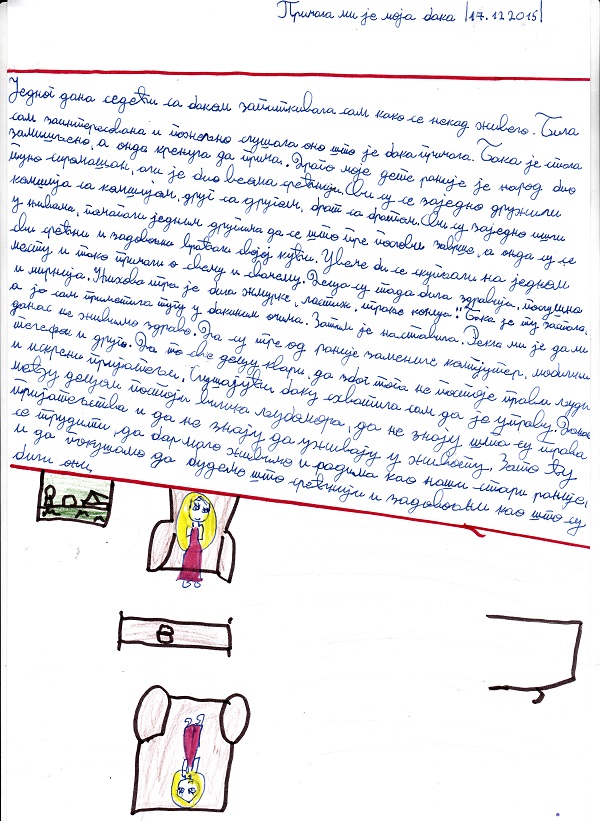 Причала ми је моја бака |17.12.2015|
Једног дана седећи са баком запиткивала сам како се некад живело. Била
сам заинтересована и пожељно слушала оно што је бака причала. Бака је стала
замишљено, а онда кренула да прича. „Драго моје дете раније је народ био
пуно сиромашан, али је био веома срећнији. Сви су се заједно дружили
комшија са комшијом, друг са другом, брат са братом. Сви су заједно ишли
у њивама, помагали једним другима да се што пре послови заврше, а онда су се
сви срећни и задовољни враћали својој кући. Увече би се скупљали на једном
месту и тако причали о свему и свачему. Деца су тада била здравија, послушна
и мирнија. Њихова игра је била жмурке, ластиш, трање коњца." Бака је ту застала,
а ја сам приметила тугу у бакиним очима. Затим је наставила. Рекла ми је да ми
данас не живимо здраво. Да су игре од раније замениле компјутер, мобилни
телефон и друго. Да то све децу квари, да због тога не постоје прави људи
и искрени пријатељи. Слушајући баку схватила сам да је у праву. Данас
међу децом постоји велика љубомора, да не знају шта су права
пријатељства и да не знају да уживају у животу. Зато ћу
се трудити да бар мало живимо и радимо као наши стари раније,
и да покушамо да будемо што срећнији и задовољни као што су
били они.
В